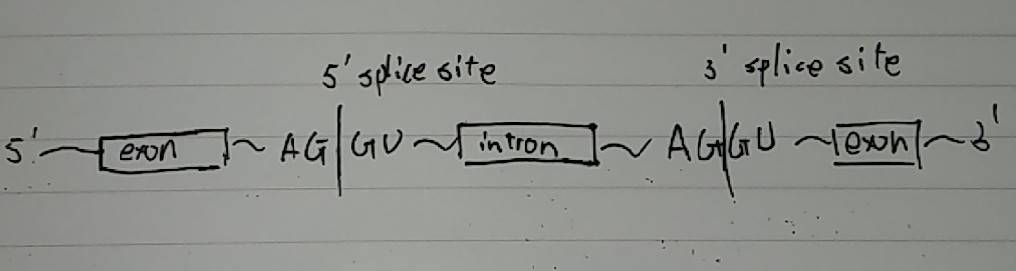 5' splice site 3' splice site
5' exon AG GU intron AG GU exon 3'